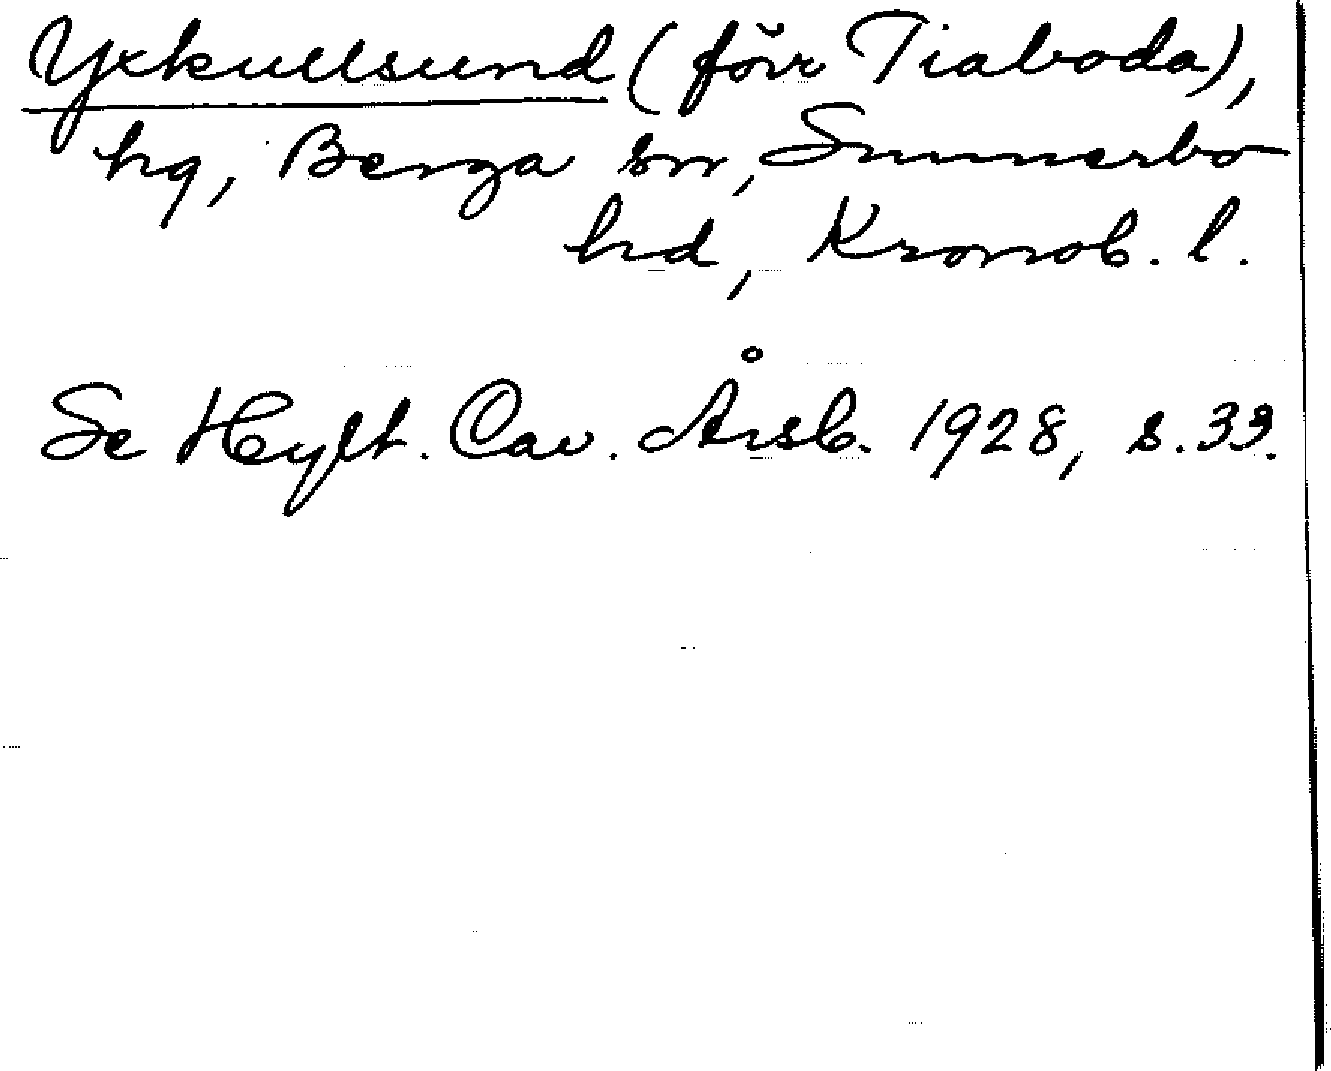 Yxkullsund (förr Tiaboda),
hg, Berga sn, Sunnerbo
hd, Kronob. l.
Se Hylt. Cav. Årsb. 1928, s. 33.